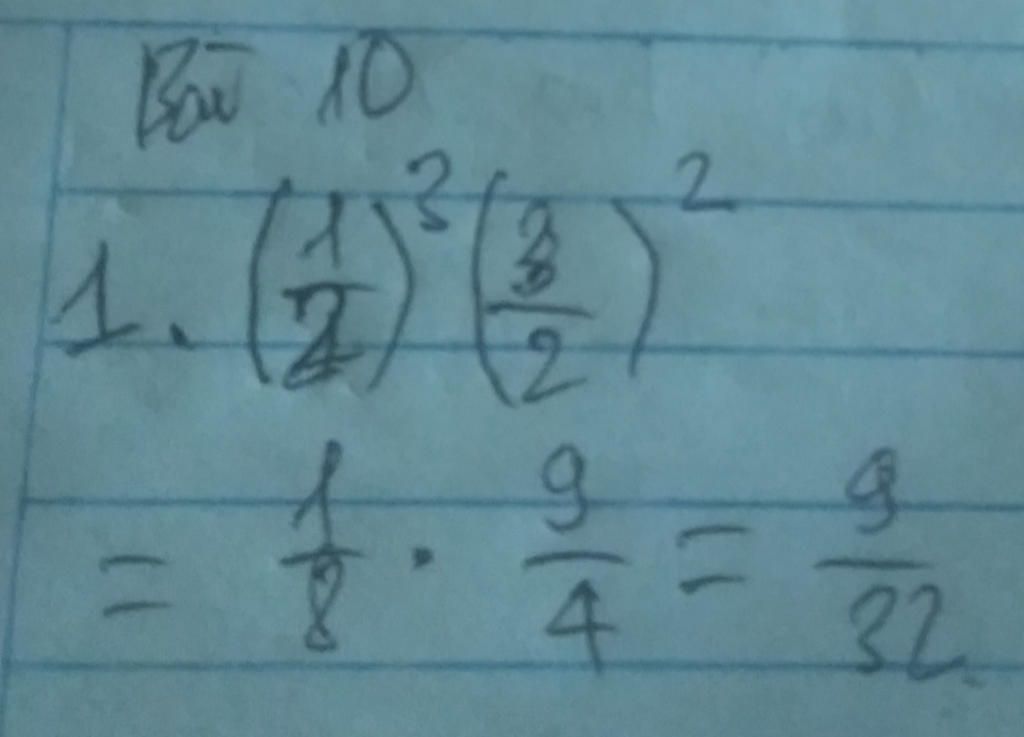 Bài 10
1. (1/2)^3 (3/2)^2
= 1/8 · 9/4 = 9/32